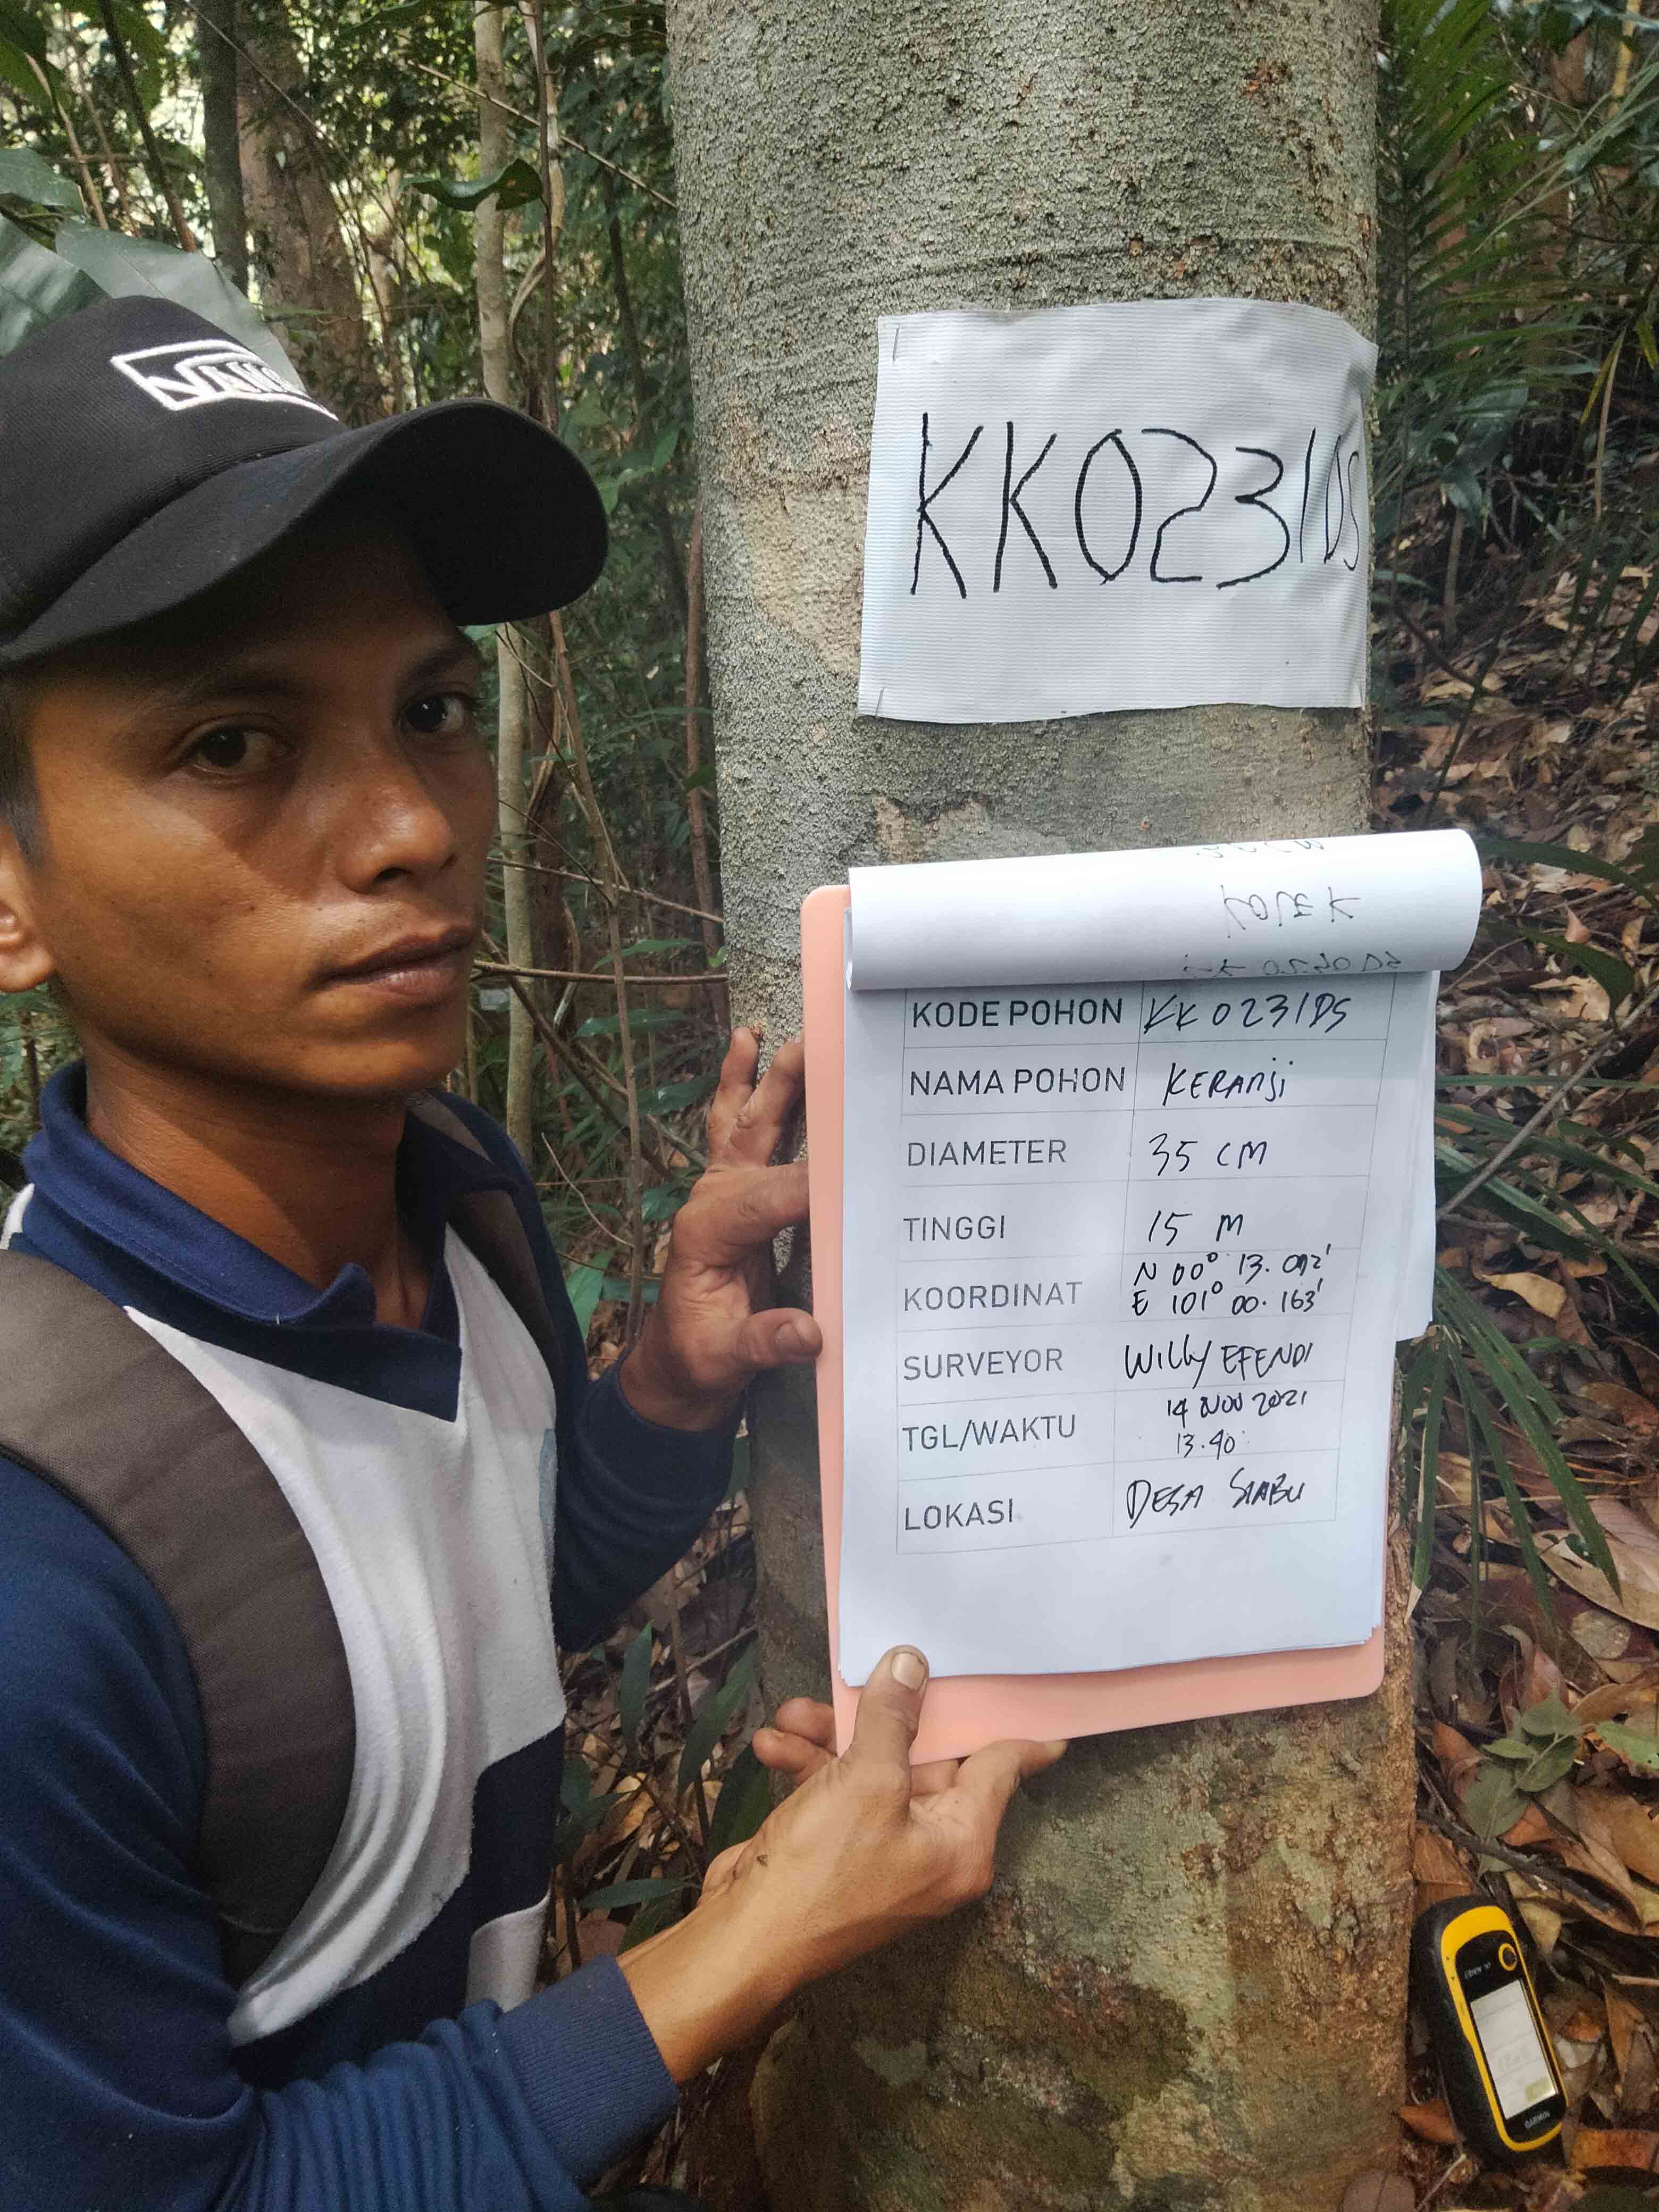 VANS
KK0231DS
KODE POHON KK0231DS
NAMA POHON KERANJI
DIAMETER 35 CM
TINGGI 15 M
KOORDINAT N 00° 13.092'
E 101° 00.163'
SURVEYOR WILLY EFENDI
TGL/WAKTU 14 NOV 2021
13.40
LOKASI DESA SIABU
eTrex 10
GARMIN